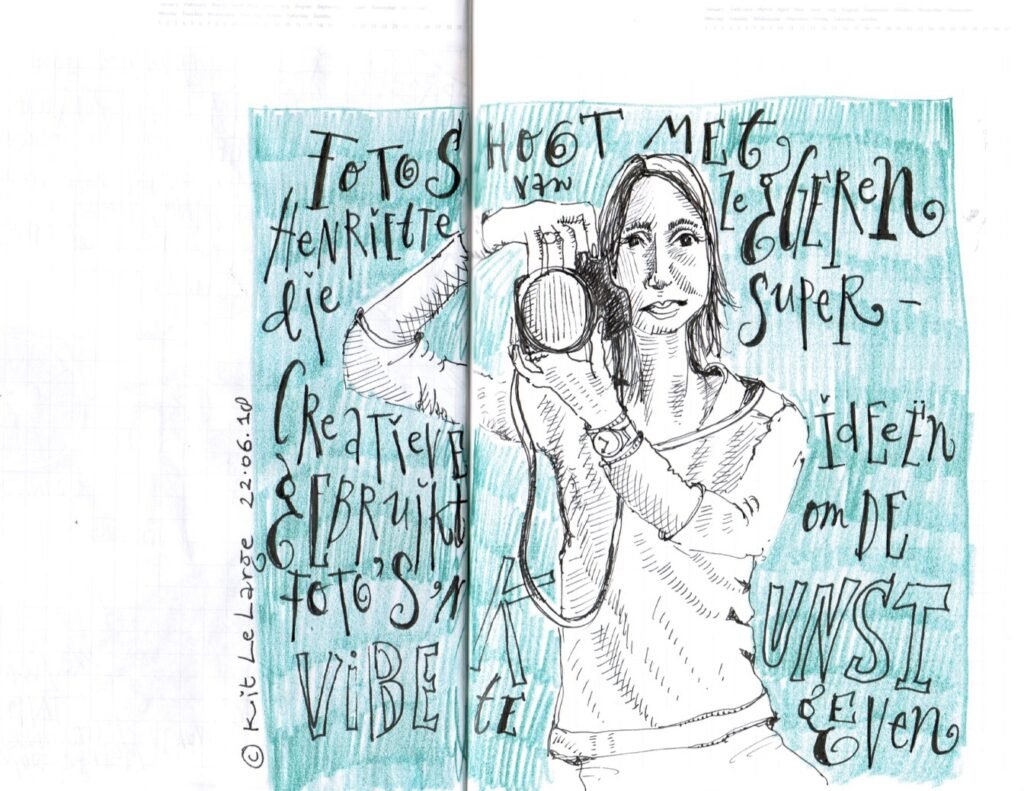 FOTOSHOOT MET
HENRIETTE van ZEGGEREN
die SUPER-
CREATIEVE IDEEËN
GEBRUIKT om DE
FOTO'S 'N KUNST
VIBE te GEVEN
© Kit Le Large 22.06.18